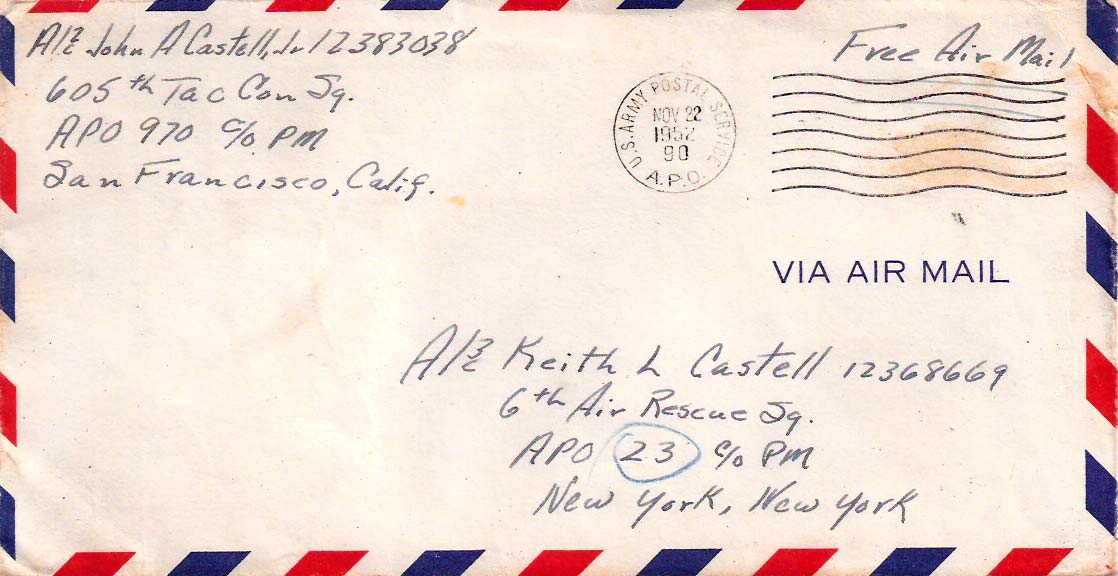 A/2c John A Castell, Jr 12383038
605th Tac Con Sq.
APO 970 c/o PM
San Francisco, Calif.
Free Air Mail
U.S. ARMY POSTAL SERVICE
NOV 22
1952
90
A.P.O.
VIA AIR MAIL
A/3c Keith L Castell 12368669
6th Air Rescue Sq.
APO 23 c/o PM
New York, New York